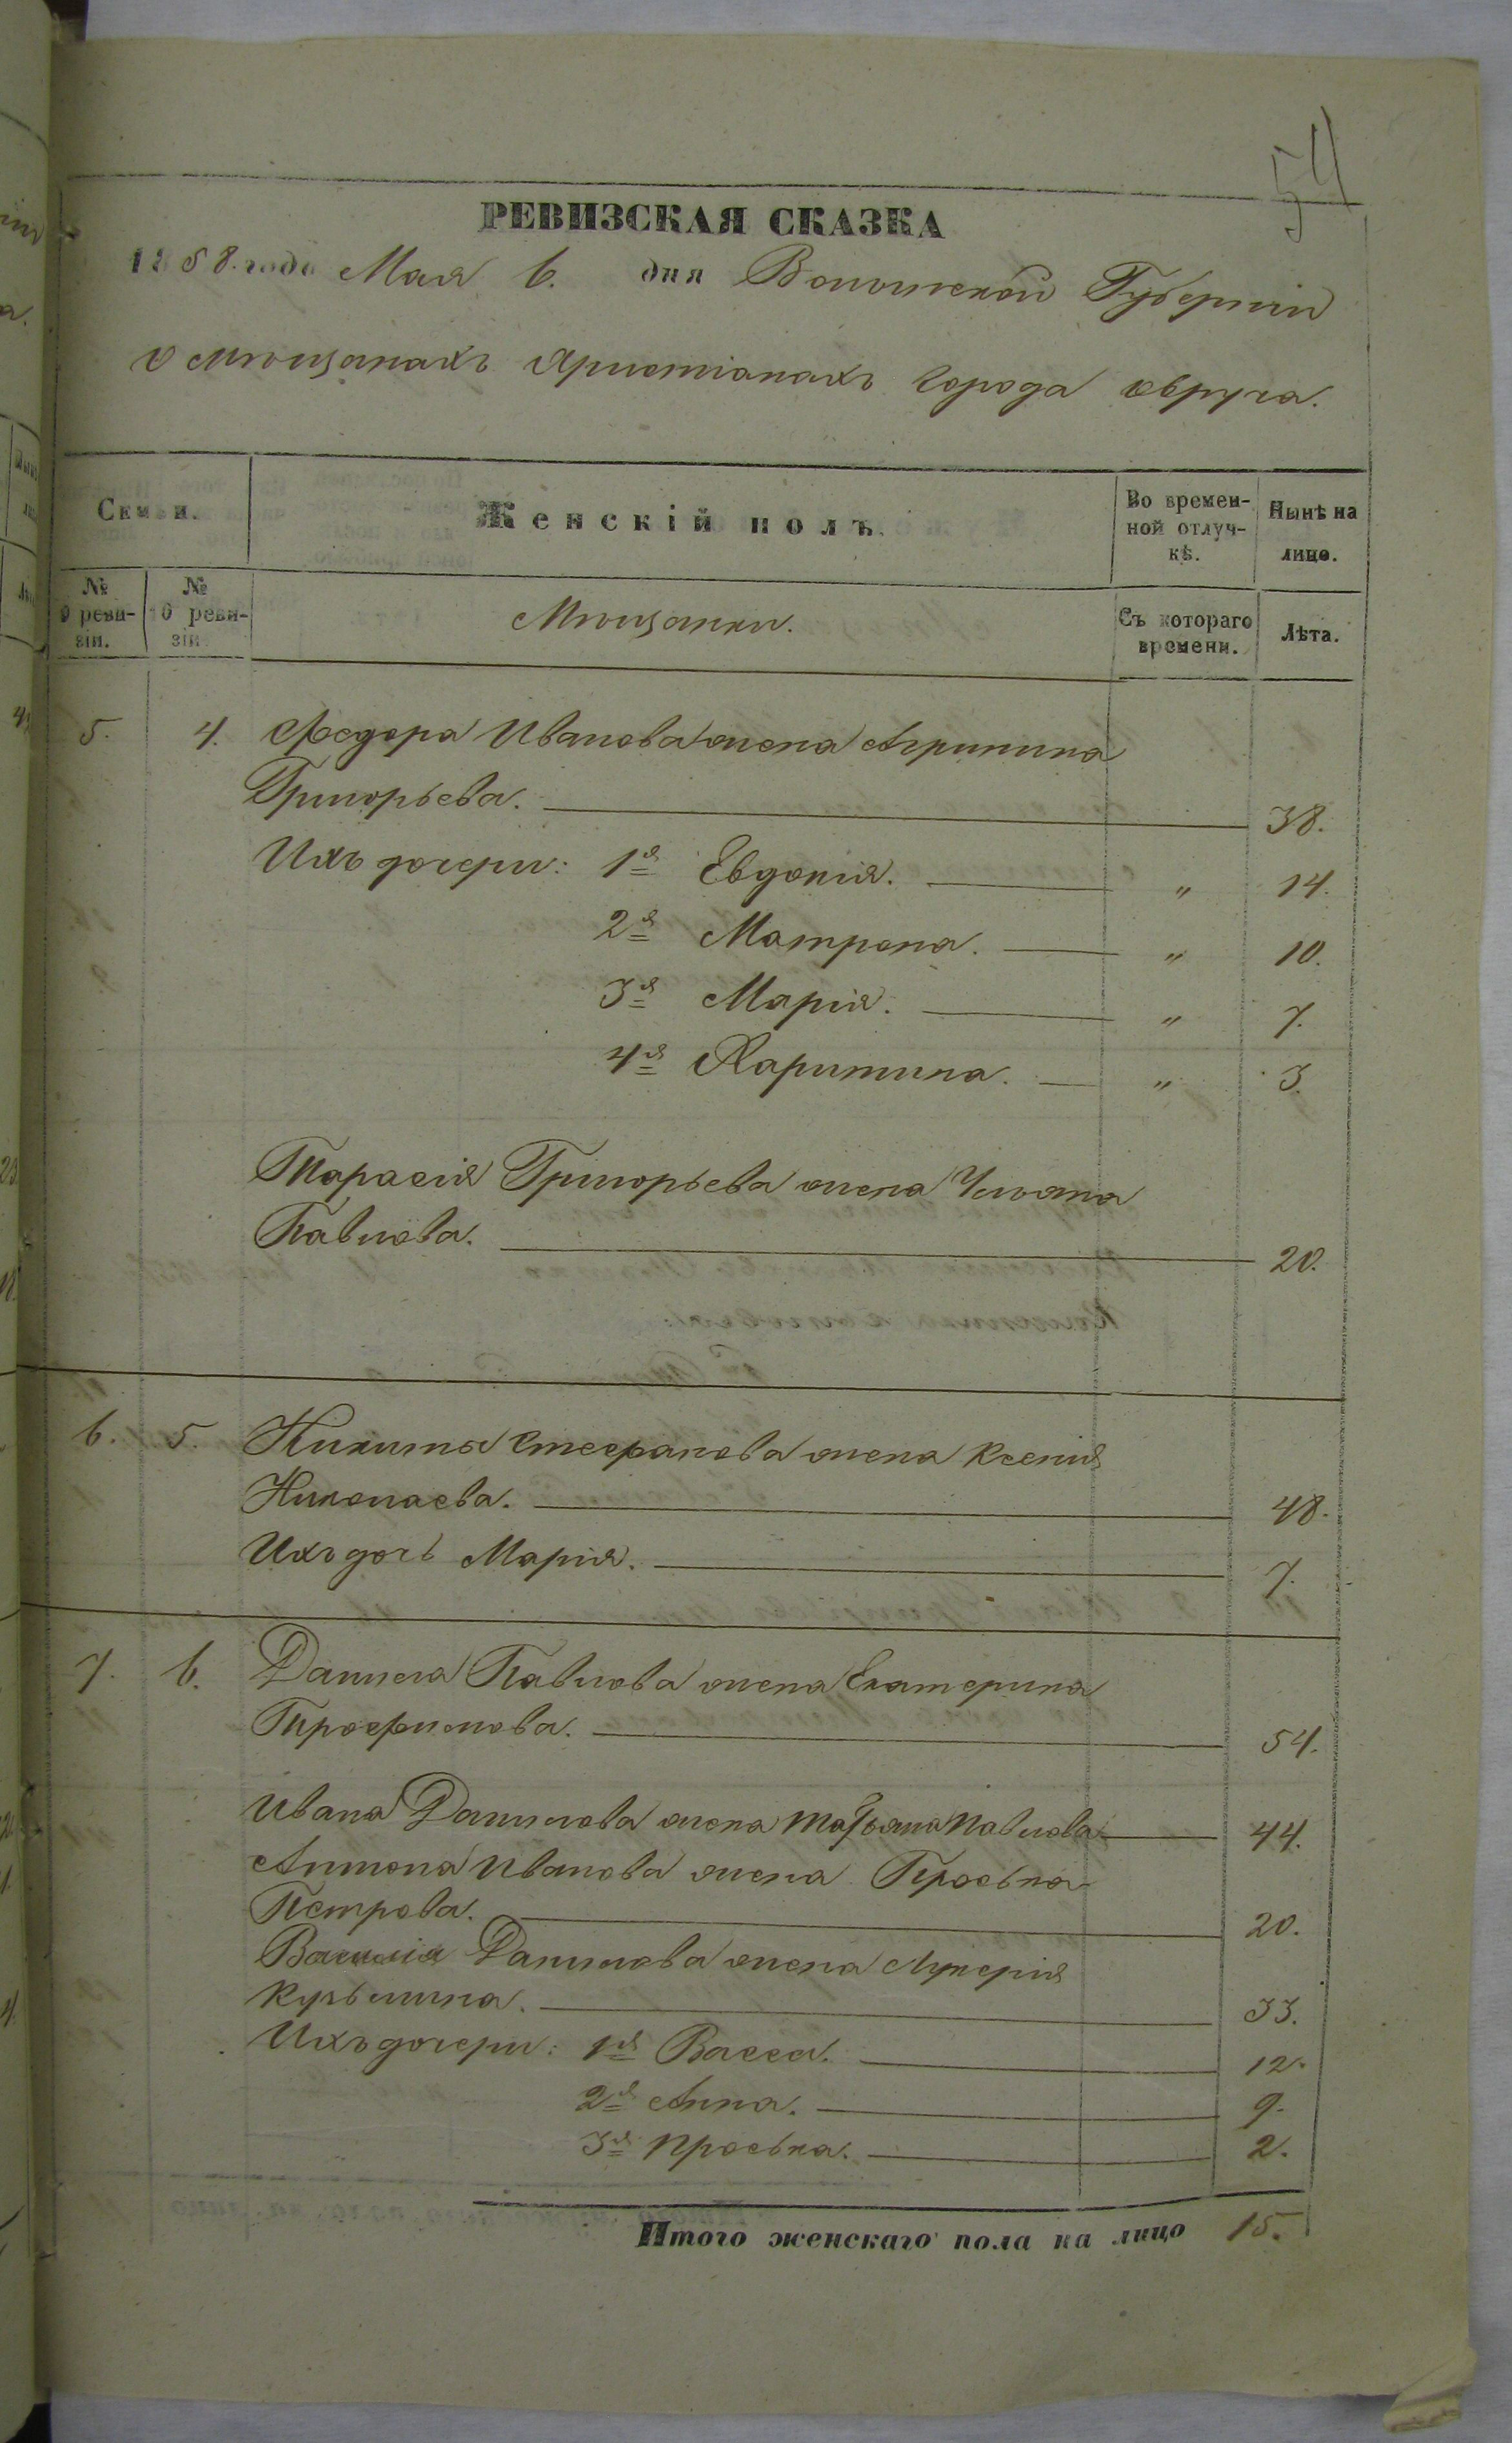 54
РЕВИЗСКАЯ СКАЗКА
1858 года Мая 6. дня Волынской Губерніи
о мѣщанахъ Христіанахъ города овруча.
Семьи. Женскій полъ. Во временной отлучкѣ. Нынѣ на лицо.
№ 9 ревизіи. № 10 ревизіи Мѣщанки. Съ котораго времени. Лѣта.
5. 4. Феодора Иванова жена Агрипина
Григорьева. 38.
Ихъ дочери: 1я Евдокія. " 14.
2я Матрона. " 10.
3я Марія. " 7.
4я Харитина. " 3.
Тарасія Григорьева жена Ульяна
Павлова. 20.
6. 5. Никиты Стефанова жена Ксенія
Николаева. 48.
Ихъ дочь Марія. 7.
7. 6. Данила Павлова жена Екатерина
Трофимова. 54.
Ивана Данилова жена Татьяна Павлова 44.
Антона Иванова жена Проська
Петрова. 20.
Василія Данилова жена Лукерія
Кузьмина. 33.
Ихъ дочери: 1я Васса. 12.
2я Анна. 9.
3я Проська. 2.
Итого женскаго пола на лицо 15.